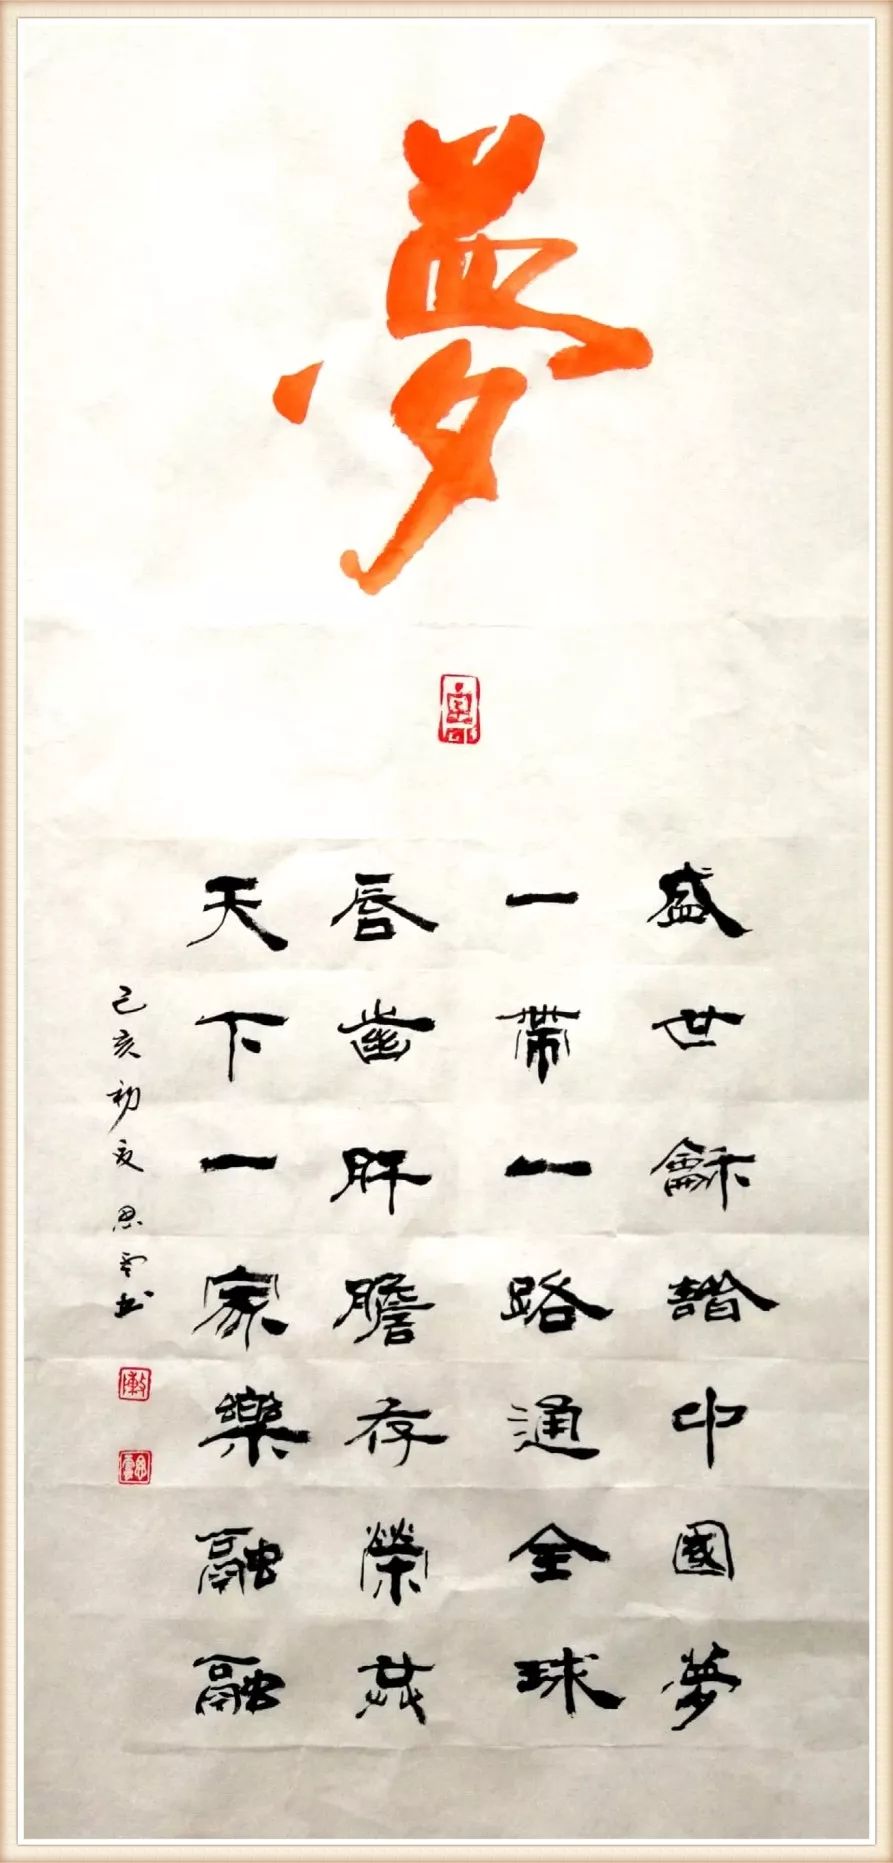 夢
盛世龢諧中國夢
一帶一路通全球
唇齒肝膽存榮共
天下一家樂融融
己亥初夏思雲书